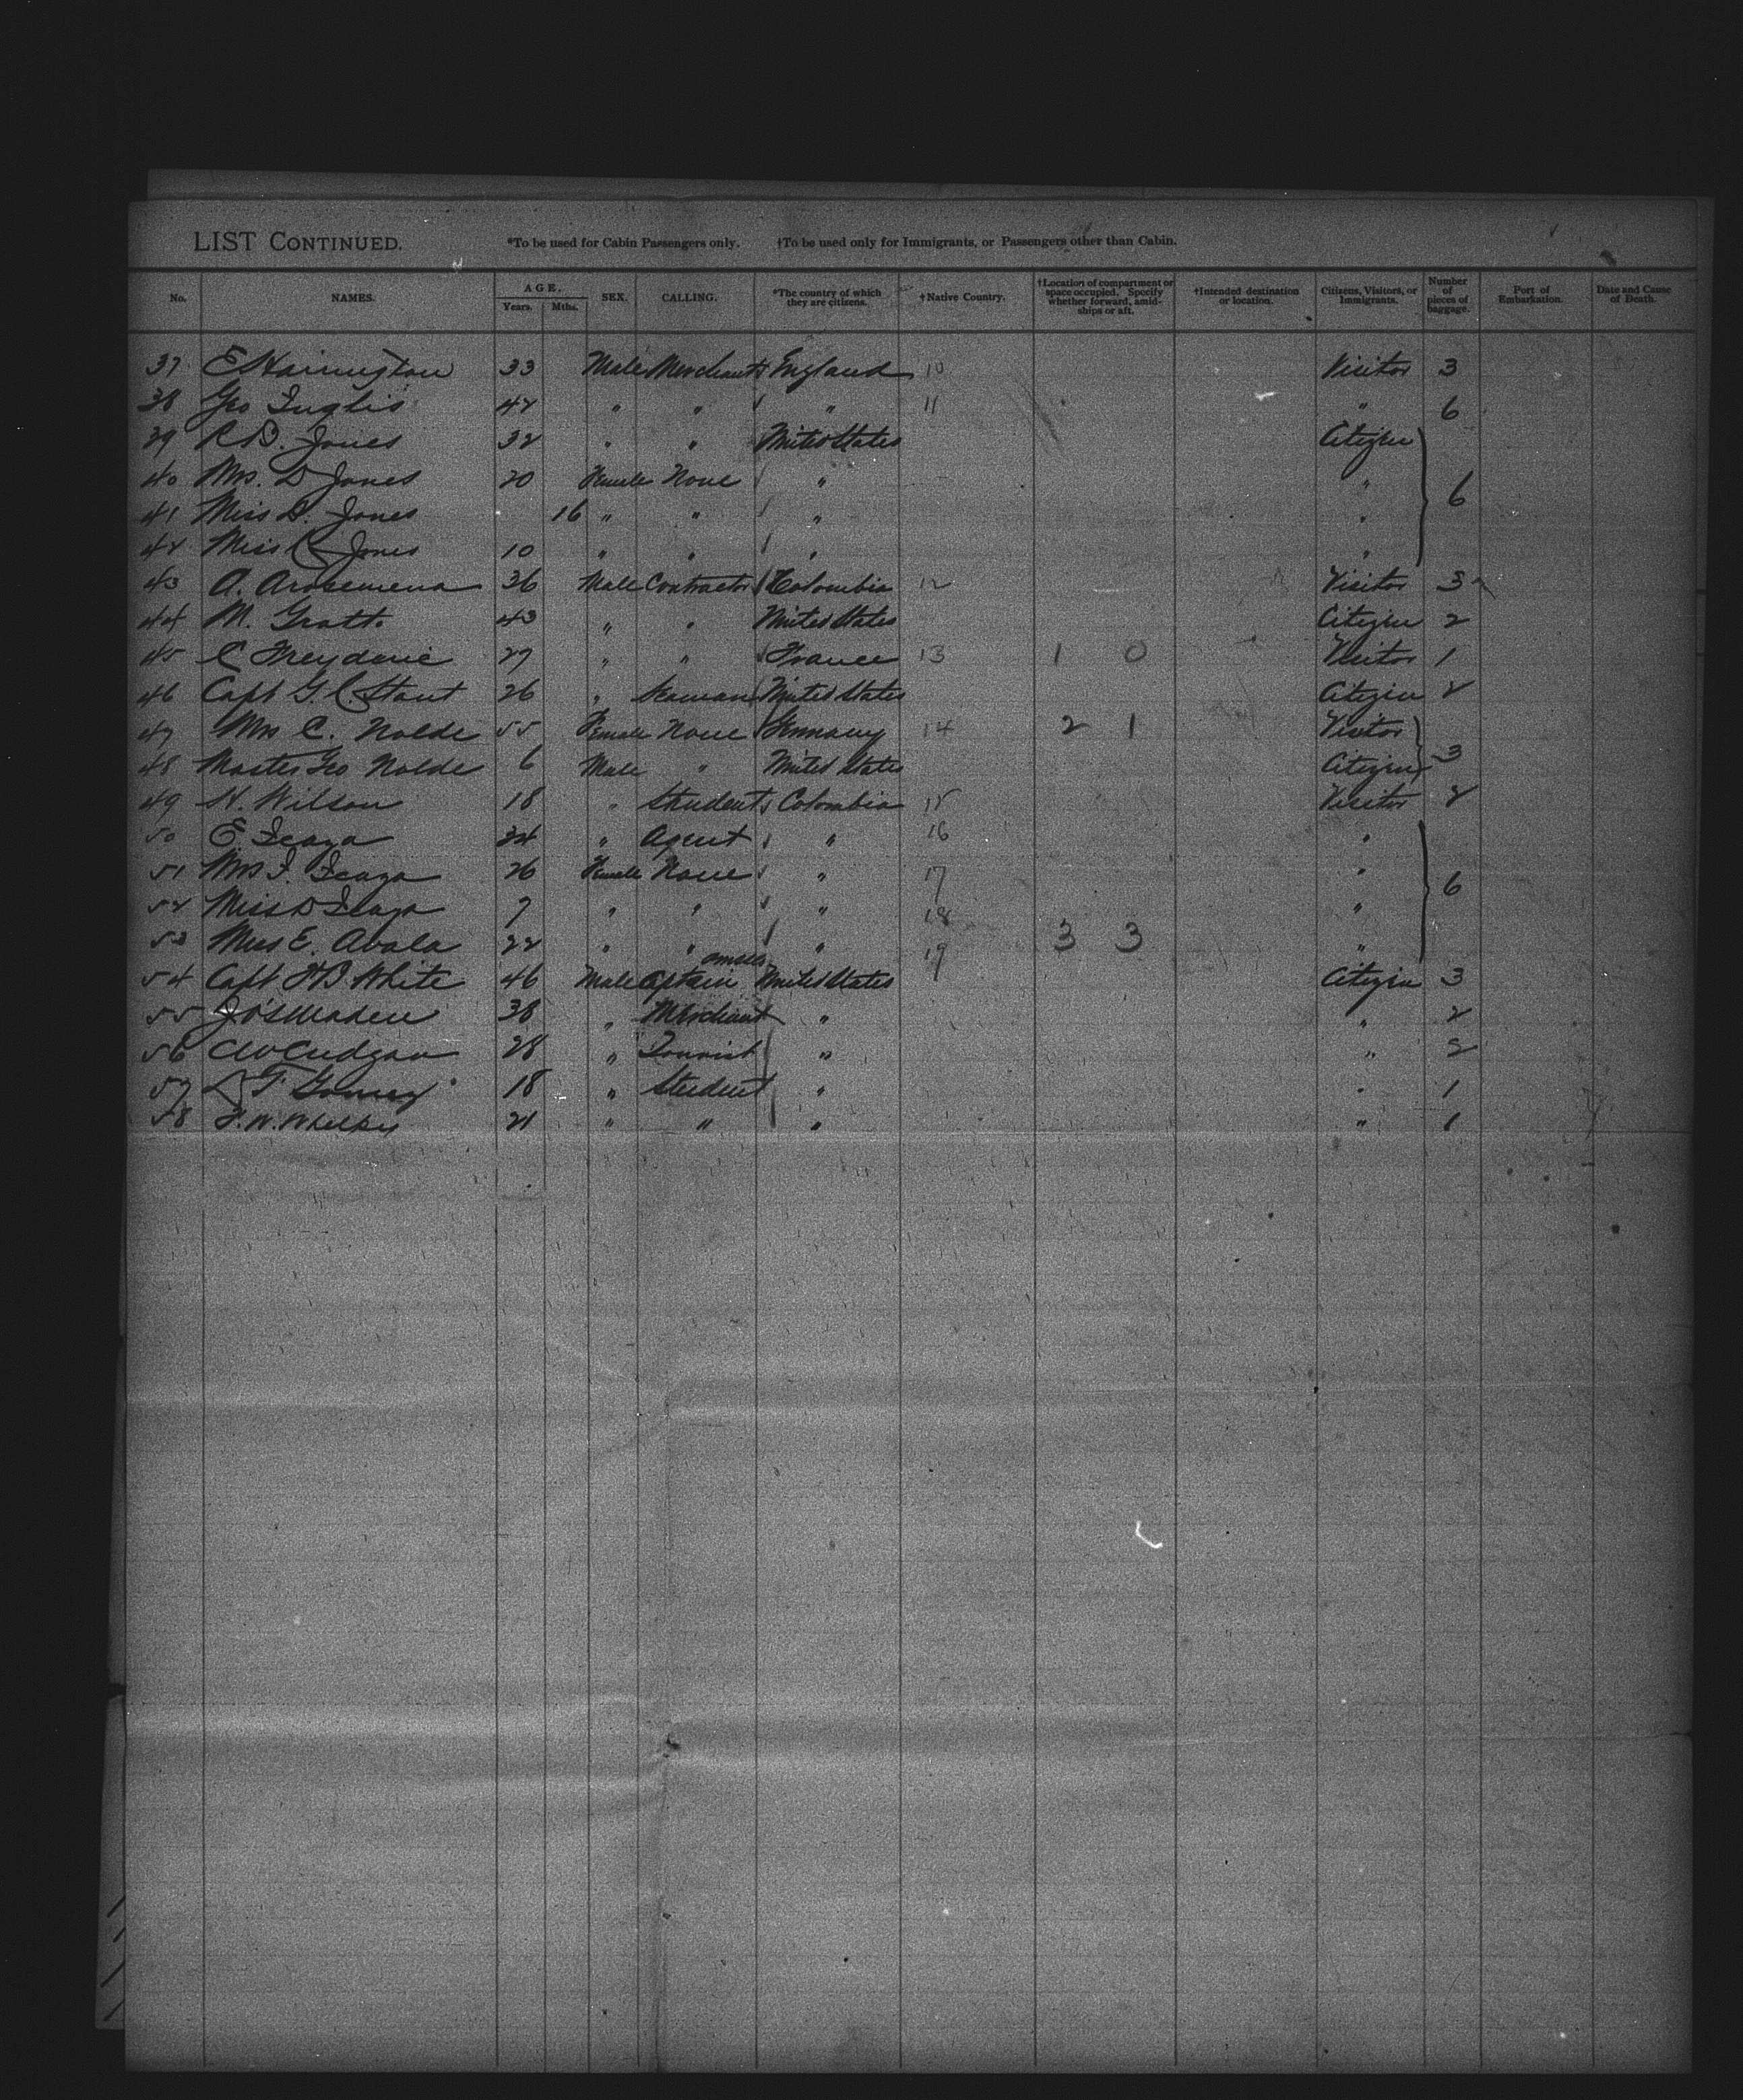 LIST CONTINUED. *To be used for Cabin Passengers only. †To be used only for Immigrants, or Passengers other than Cabin.
No. NAMES. AGE. Years. Mths. SEX. CALLING. *The country of which they are citizens. †Native Country. †Location of compartment or space occupied. Specify whether forward, amidships or aft. †Intended destination or location. Citizens, Visitors, or Immigrants. Number of pieces of baggage. Port of Embarkation. Date and Cause of Death.
37 E Harrington 33 Male Merchant England 10 Visitor 3
38 Geo Inglis 42 " " " 11 " 6
39 R D. Jones 32 " " United States Citizen
40 Mrs. D Jones 20 Female None " " 6
41 Miss D. Jones 16 " " " "
42 Miss C Jones 10 " " " "
43 A. Arosemena 36 Male Contractor Colombia 12 Visitor 3
44 M. Gratt. 43 " " United States Citizen 2
45 C 27 " " France 13 1 0 Visitor 1
46 Capt G. C. Stout 26 " Seaman United States Citizen 2
47 Mrs C. Nolde 55 Female None Germany 14 2 1 Visitor
48 Master Geo Nolde 6 Male " United States Citizen 3
49 H. Wilson 18 " Student Colombia 15 Visitor 2
50 E. Icaza 34 " Agent " 16 "
51 Mrs I. Icaza 26 Female None " 17 " 6
52 Miss D Icaza 7 " " " 18 "
53 Miss E. Avala 22 " " " 19 3 3 "
54 Capt H B White 46 Male Captain United States Citizen 3
55 38 " Merchant " " 2
56 28 " Tourist " " 2
57 18 " Student " " 1
58 21 " " " " 1